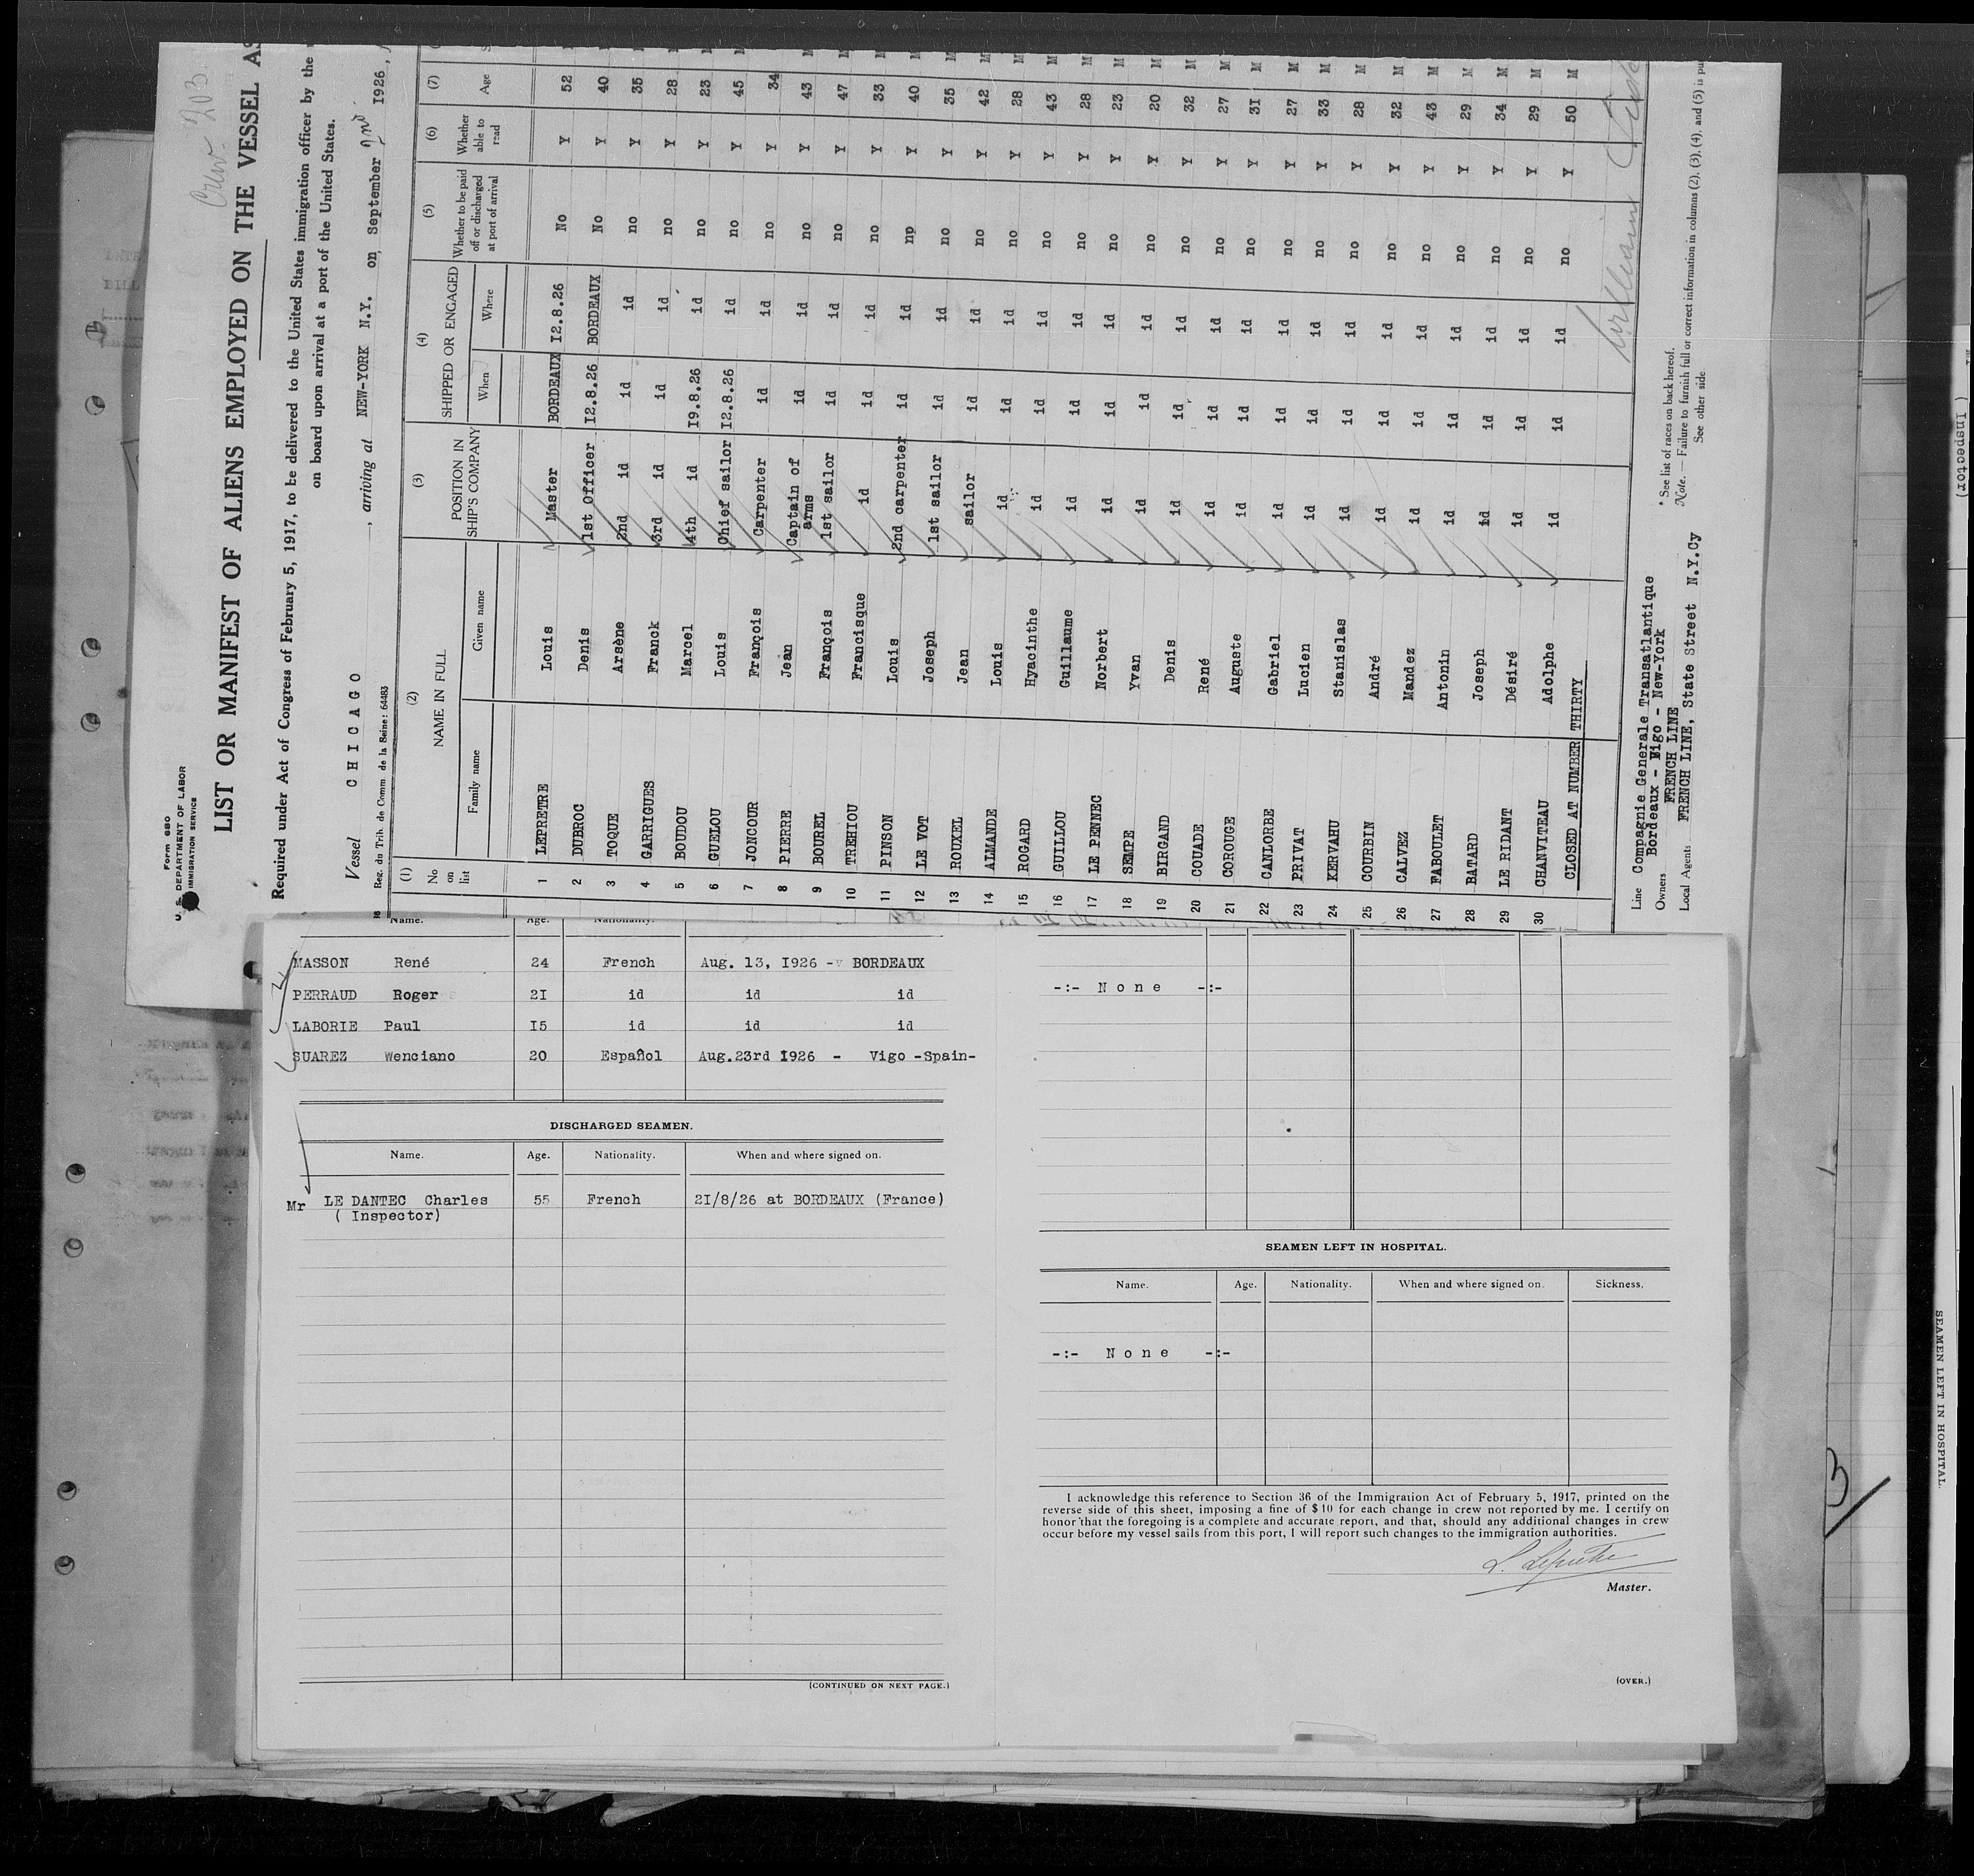 Crew 203
Form 680
U. S. DEPARTMENT OF LABOR
IMMIGRATION SERVICE
LIST OR MANIFEST OF ALIENS EMPLOYED ON THE VESSEL AS
Required under Act of Congress of February 5, 1917, to be delivered to the United States immigration officer by the
on board upon arrival at a port of the United States.
Vessel CHICAGO , arriving at NEW-YORK N.Y. on, September 2nd 1926,
Reg. du Trib. de Comm. de la Seine: 64483
(1) (2) (3) (4) (5) (6) (7)
No on list NAME IN FULL POSITION IN SHIP'S COMPANY SHIPPED OR ENGAGED Whether to be paid off or discharged at port of arrival Whether able to read Age
Family name Given name When Where
1 LEPRETRE Louis Master BORDEAUX 12.8.26 No Y 52
2 DUBROC Denis 1st officer 12.8.26 BORDEAUX No Y 40
3 TOQUE Arsène 2nd id id id no Y 35
4 GARRIGUES Franck 3rd id id id no Y 28
5 BOUDOU Marcel 4th id 19.8.26 id no Y 23
6 GUELOU Louis Chief sailor 12.8.26 id no Y 45
7 JONCOUR François Carpenter id id no Y 34
8 PIERRE Jean Captain of arms id id no Y 43 M
9 BOUREL François 1st sailor id id no Y 47 M
10 TREHIOU Francisque id id id no Y 33 M
11 PINSON Louis 2nd carpenter id id np Y 40 M
12 LE VOT Joseph 1st sailor id id no Y 35 M
13 ROUXEL Jean sailor id id no Y 42 M
14 ALMANDE Louis id id id no Y 28 M
15 ROGARD Hyacinthe id id id no Y 43 M
16 GUILLOU Guillaume id id id no Y 28 M
17 LE PENNEC Norbert id id id no Y 23 M
18 SEMPE Yvan id id id no Y 20 M
19 BIRGAND Denis id id id no Y 32 M
20 COUADE René id id id no Y 27 M
21 COROUGE Auguste id id id no Y 31 M
22 CANLORBE Gabriel id id id no Y 27 M
23 PRIVAT Lucien id id id no Y 33 M
24 KERVAHU Stanislas id id id no Y 28 M
25 COURBIN André id id id no Y 32 M
26 CALVEZ Mandez id id id no Y 43 M
27 FABOULET Antonin id id id no Y 29 M
28 BATARD Joseph id id id no Y 34 M
29 LE RIDANT Désiré id id id no Y 29 M
30 CHANVITEAU Adolphe id id id no Y 50 M
CLOSED AT NUMBER THIRTY
Line Compagnie Generale Transatlantique
Bordeaux - Vigo - New-York
Owners FRENCH LINE
Local Agents FRENCH LINE, State Street N.Y.Cy
* See list of races on back hereof.
Note. — Failure to furnish full or correct information in columns (2), (3), (4), and (5) is pu
See other side
Name. Age. Nationality.
MASSON René 24 French Aug. 13, 1926 - BORDEAUX
PERRAUD Roger 21 id id id
LABORIE Paul 15 id id id
SUAREZ Wenciano 20 Español Aug.23rd 1926 - Vigo -Spain-
DISCHARGED SEAMEN.
Name. Age. Nationality. When and where signed on.
Mr LE DANTEC Charles 55 French 21/8/26 at BORDEAUX (France)
( Inspector)
(CONTINUED ON NEXT PAGE.)
-:- None -:-
SEAMEN LEFT IN HOSPITAL.
Name. Age. Nationality. When and where signed on. Sickness.
-:- None -:-
I acknowledge this reference to Section 36 of the Immigration Act of February 5, 1917, printed on the
reverse side of this sheet, imposing a fine of $10 for each change in crew not reported by me. I certify on
honor that the foregoing is a complete and accurate report, and that, should any additional changes in crew
occur before my vessel sails from this port, I will report such changes to the immigration authorities.
L. Lepretre
Master.
(OVER.)
( Inspector)
SEAMEN LEFT IN HOSPITAL.
3